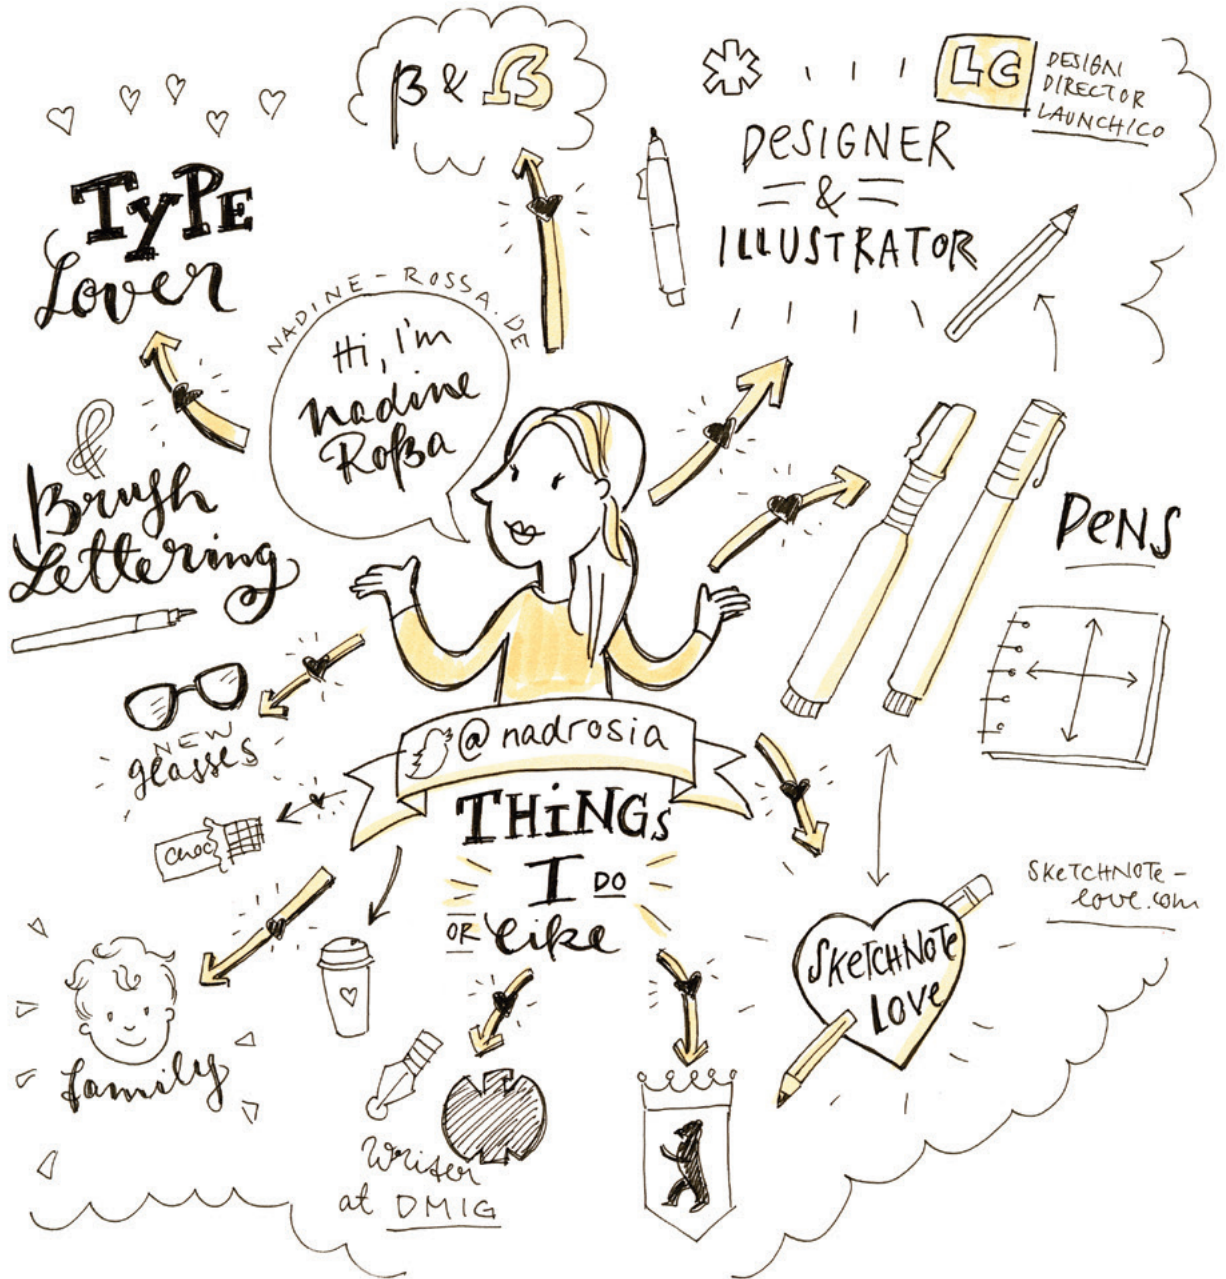 ß & ẞ
LC
DESIGN
DIRECTOR
LAUNCHICO
DESIGNER
&
ILLUSTRATOR
TyPE
Lover
NADINE-ROSSA.DE
Hi, I'm
Nadine
Roßa
&
Brush
Lettering
PENS
NEW
glasses
@nadrosia
THiNGs
I DO
OR like
CHOC
SKETCHNOTE-
LOVE.COM
SKETCHNOTE
LOVE
family
Writer
at DMIG